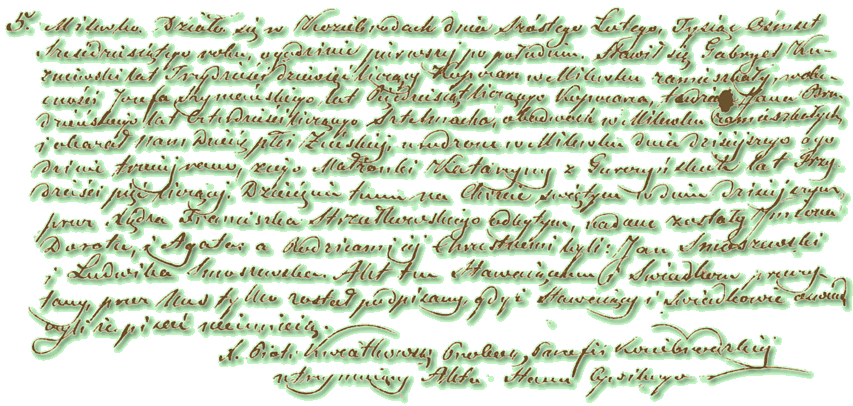 5. Milewko. Działo się w Koziebrodach dnia Szóstego Lutego, Tysiąc Ośmset
Sześdziesiątego roku, o godzinie pierwszej po południu. Stawił się Gabryel Ku-
zniewski lat Trzydzieści dziewięć liczący Kupiec w Milewku zamieszkały w obe-
cności Józefa Szymańskiego, lat Pięćdziesiąt liczącego i Jana
lat czterdzieści liczącego obadwóch w Milewku zamieszkałych
i okazał nam Dziecię płci Żeńskiej, urodzone w Milewku dnia dzisiejszego o go
dzinie z rana, z jego Małżonki Katarzyny z lat Trzy
dzieści pięć liczącej. Dziecięciu temu na Chrzcie świętym w dniu dzisiejszym,
przez Xiędza Franciszka Strzałkowskiego odbytym, nadane zostały Imiona
Dorota, i Agata, a Rodzicami jej Chrzestnemi byli: Jan Smoszewski
i Ludwika Smoszewska. Akt ten Stawiącemu i Świadkom przeczy
tany przez Nas tylko został podpisany gdyż Stawiający i Świadkowie oświad
czyli że pisać nieumieją.
X. Piotr Kwiatkowski Proboszcz Parafii Koziebrodzkiej
utrzymujący Akta Stanu Cywilnego